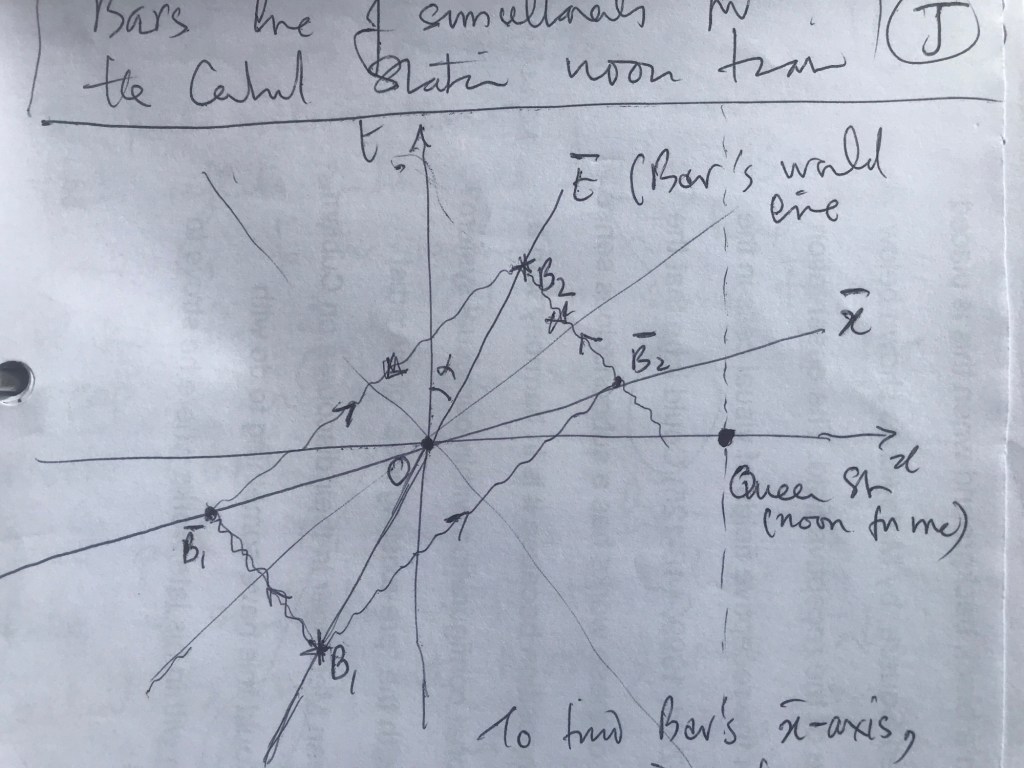 Bars line of simultaneity in
the Central Station noon train
J
t
t̄ (Bar's world
line
B₂
B̄₂
x̄
α
O
x
Queen St
(noon for me)
B̄₁
B₁
To find Bar's x̄-axis,